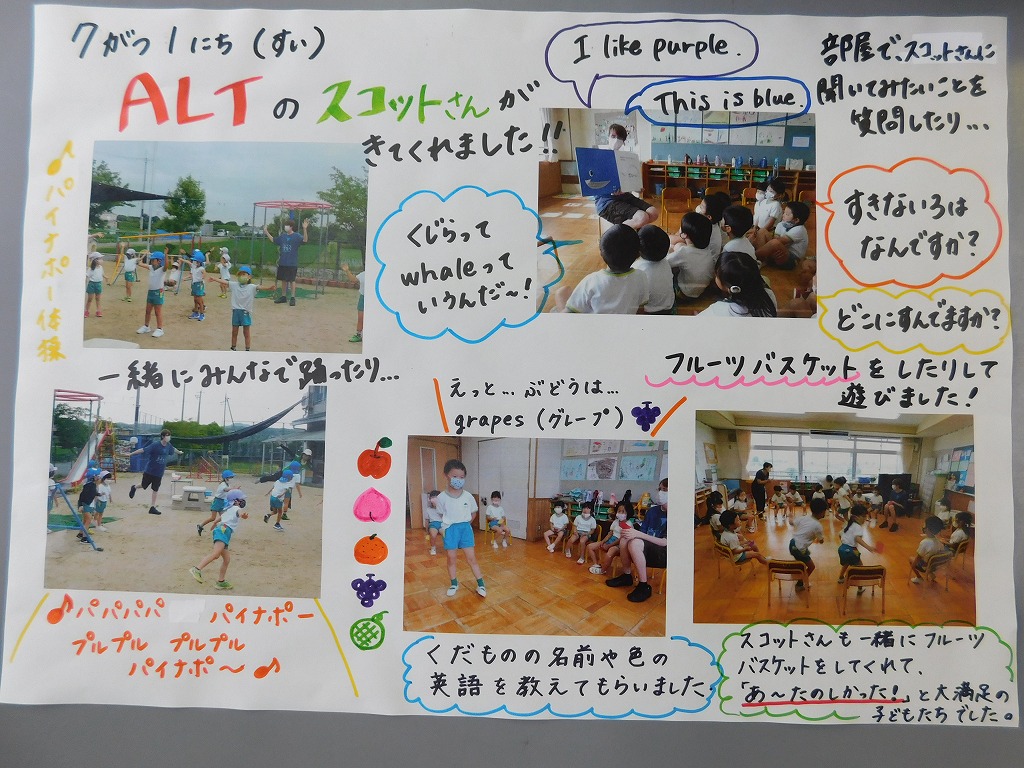 7がつ1にち(すい)
ALTのスコットさんが
きてくれました!!
I like purple.
This is blue.
部屋で、スコットさんに
聞いてみたいことを
質問したり...
♪パイナポー体操
くじらって
whaleって
いうんだ〜!
すきないろは
なんですか?
どこにすんでますか?
一緒にみんなで踊ったり...
えっと...ぶどうは...
grapes(グレープ)
フルーツバスケットをしたりして
遊びました!
♪パパパパ パイナポー
プルプル プルプル
パイナポ〜♪
くだものの名前や色の
英語を教えてもらいました
スコットさんも一緒にフルーツ
バスケットをしてくれて、
「あ〜たのしかった!」と大満足の
子どもたちでした。